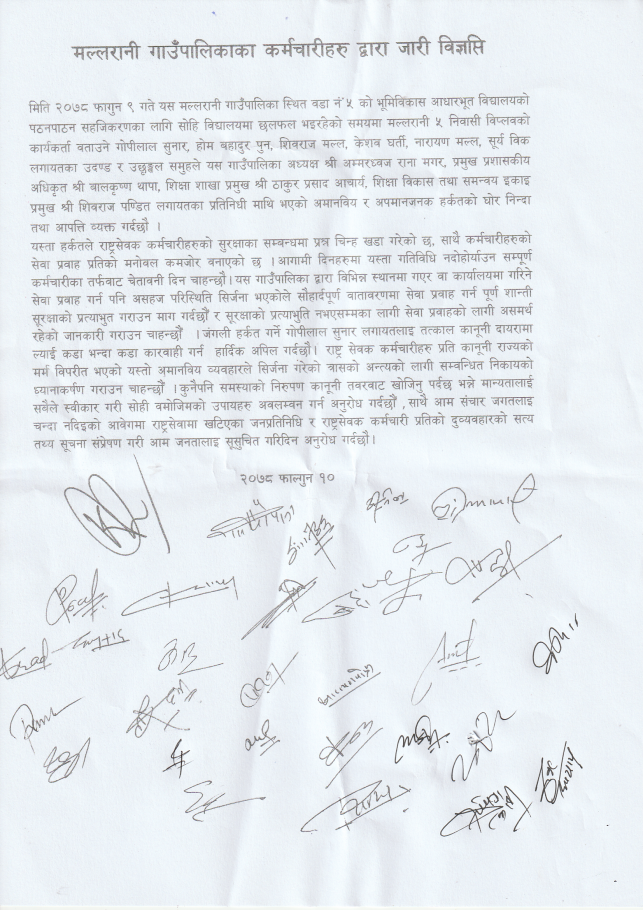 मल्लरानी गाउँपालिकाका कर्मचारीहरु द्वारा जारी विज्ञप्ति
मिति २०७८ फागुन ९ गते यस मल्लरानी गाउँपालिका स्थित वडा नं ५ को भूमिविकास आधारभूत विद्यालयको
पठनपाठन सहजिकरणका लागि सोहि विद्यालयमा छलफल भइरहेको समयमा मल्लरानी ५ निवासी विप्लवको
कार्यकर्ता बताउने गोपीलाल सुनार, होम बहादुर पुन, शिवराज मल्ल, केशव घर्ती, नारायण मल्ल, सूर्य विक
लगायतका उदण्ड र उछृङ्खल समुहले यस गाउँपालिका अध्यक्ष श्री अम्मरध्वज राना मगर, प्रमुख प्रशासकीय
अधिकृत श्री बालकृष्ण थापा, शिक्षा शाखा प्रमुख श्री ठाकुर प्रसाद आचार्य, शिक्षा विकास तथा समन्वय इकाइ
प्रमुख श्री शिवराज पण्डित लगायतका प्रतिनिधी माथि भएको अमानविय र अपमानजनक हर्कतको घोर निन्दा
तथा आपत्ति व्यक्त गर्दछौं ।
यस्ता हर्कतले राष्ट्रसेवक कर्मचारीहरुको सुरक्षाका सम्वन्धमा प्रश्न चिन्ह खडा गरेको छ, साथै कर्मचारीहरुको
सेवा प्रवाह प्रतिको मनोवल कमजोर बनाएको छ । आगामी दिनहरुमा यस्ता गतिविधि नदोहोर्याउन सम्पूर्ण
कर्मचारीका तर्फवाट चेतावनी दिन चाहन्छौं । यस गाउँपालिका द्वारा विभिन्न स्थानमा गएर वा कार्यालयमा गरिने
सेवा प्रवाह गर्न पनि असहज परिस्थिति सिर्जना भएकोले सौहार्दपूर्ण वातावरणमा सेवा प्रवाह गर्न पूर्ण शान्ती
सुरक्षाको प्रत्याभुत गराउन माग गर्दछौं र सुरक्षाको प्रत्याभुति नभएसम्मका लागी सेवा प्रवाहको लागी असमर्थ
रहेको जानकारी गराउन चाहन्छौं । जंगली हर्कत गर्ने गोपीलाल सुनार लगायतलाइ तत्काल कानूनी दायरामा
ल्याई कडा भन्दा कडा कारवाही गर्न हार्दिक अपिल गर्दछौं। राष्ट्र सेवक कर्मचारीहरु प्रति कानूनी राज्यको
मर्म विपरीत भएको यस्तो अमानविय व्यवहारले सिर्जना गरेको त्रासको अन्त्यको लागी सम्वन्धित निकायको
ध्यानाकर्षण गराउन चाहन्छौं । कुनैपनि समस्याको निरुपण कानूनी तवरवाट खोजिनु पर्दछ भन्ने मान्यतालाई
सबैले स्वीकार गरी सोही वमोजिमको उपायहरु अवलम्वन गर्न अनुरोध गर्दछौं , साथै आम संचार जगतलाइ
चन्दा नदिइको आवेगमा राष्ट्रसेवामा खटिएका जनप्रतिनिधि र राष्ट्रसेवक कर्मचारी प्रतिको दुव्यवहारको सत्य
तथ्य सूचना संप्रेषण गरी आम जनतालाइ सूसुचित गरिदिन अनुरोध गर्दछौं।
२०७८ फाल्गुन १०